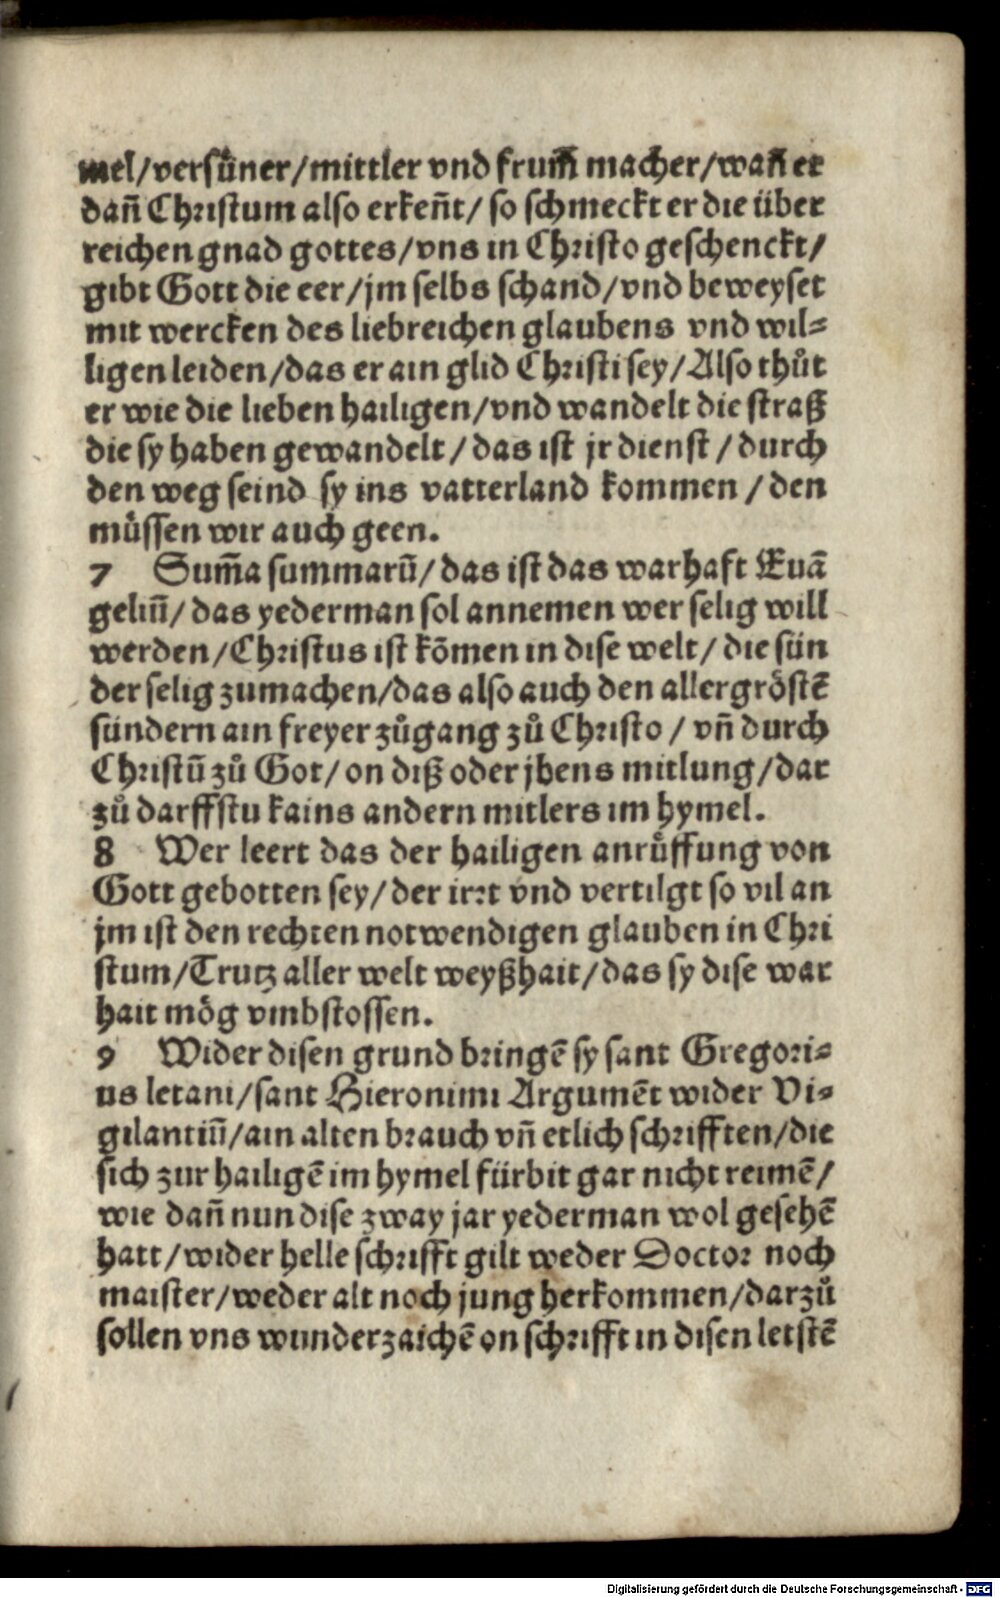 mel/versůner/mittler vnd frum̃ macher/wañ er
dañ Christum also erkeñt/ so schmeckt er die über
reichen gnad gottes/vns in Christo geschenckt/
gibt Gott die eer/jm selbs schand/vnd beweyset
mit wercken des liebreichen glaubens vnd wil⸗
ligen leiden/das er ain glid Christi sey/Also thůt
er wie die lieben hailigen/vnd wandelt die straß
die sy haben gewandelt/das ist jr dienst/durch
den weg seind sy ins vatterland kommen/den
müssen wir auch geen.
7 Sum̃a summarū/das ist das warhaft Euā
geliū/das yederman sol annemen wer selig will
werden/Christus ist kōmen in dise welt/die sün
der selig zumachen/das also auch den allergröstē
sündern ain freyer zůgang zů Christo/vñ durch
Christū zů Got/on diß oder jhens mitlung/dar
zů darffstu kains andern mitlers im hymel.
8 Wer leert das der hailigen anrůffung von
Gott gebotten sey/der irrt vnd vertilgt so vil an
jm ist den rechten notwendigen glauben in Chri
stum/Trutz aller welt weyßhait/das sy dise war
hait mög vmbstossen.
9 Wider disen grund bringē sy sant Gregori⸗
us letani/sant Hieronimi Argumēt wider Vi⸗
gilantiū/ain alten brauch vñ etlich schrifften/die
sich zur hailigē im hymel fürbit gar nicht reimē/
wie dañ nun dise zway jar yederman wol gesehē
hatt/wider helle schrifft gilt weder Doctor noch
maister/weder alt noch jung herkommen/darzů
sollen vns wunderzaichē on schrifft in disen letstē
Digitalisierung gefördert durch die Deutsche Forschungsgemeinschaft - DFG